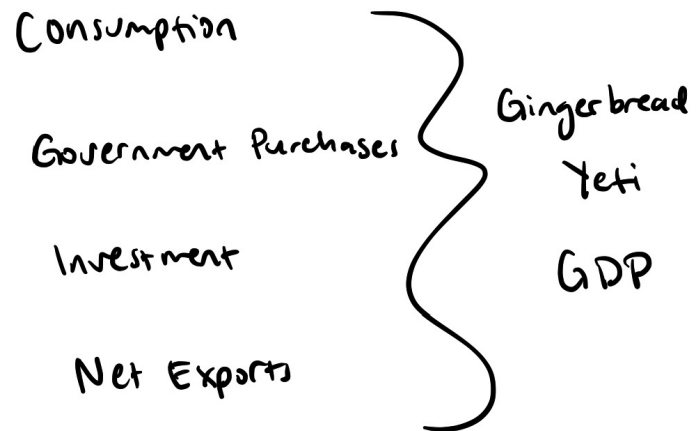 Consumption
Government Purchases
Investment
Net Exports
Gingerbread
Yeti
GDP